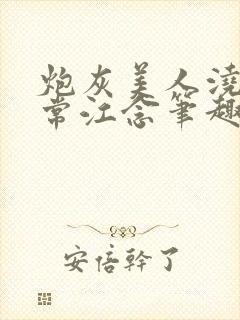 炮灰美人浇
常江念笔趣
安倍幹了